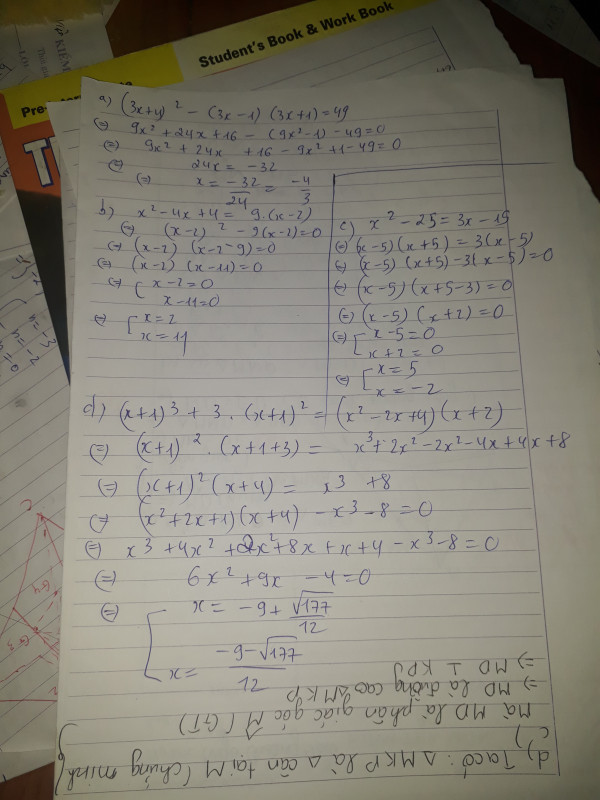 Student's Book & Work Book
a) (3x+4)² - (3x-1)(3x+1)=49
(=) 9x² + 24x + 16 - (9x²-1) - 49=0
(=) 9x² + 24x + 16 - 9x² + 1 - 49 = 0
(=) 24x = -32
(=) x = -32/24 = -4/3
b) x² - 4x + 4 = 9.(x-2)
(=) (x-2)² - 9(x-2)=0
(=) (x-2) (x-2-9)=0
(=) (x-2) (x-11)=0
(=) [ x-2=0
x-11=0
(=) [ x=2
x=11
c) x² - 25 = 3x - 15
(=) (x-5)(x+5) = 3(x-5)
(=) (x-5) (x+5) - 3(x-5)=0
(=) (x-5) (x+5-3) = 0
(=) (x-5) (x+2) = 0
(=) [ x-5=0
x+2=0
(=) [ x=5
x=-2
d) (x+1)³ + 3.(x+1)² = (x²-2x+4)(x+2)
(=) (x+1)².(x+1+3) = x³+2x²-2x²-4x+4x+8
(=) (x+1)²(x+4) = x³ +8
(=) (x²+2x+1)(x+4) - x³ - 8 = 0
(=) x³ + 4x² + 2x² + 8x + x + 4 - x³ - 8 = 0
(=) 6x² + 9x - 4 = 0
(=) [ x = -9 + √177/12
x = -9-√177/12
d) Ta có: Δ MKP là Δ cân tại M (chứng minh
c)
mà MD là phân giác góc M (GT)
=> MD là đường cao Δ MKP
=> MD ⊥ KP